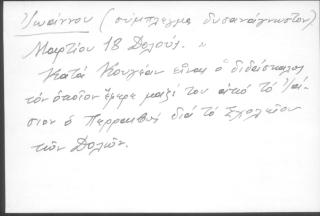 Ἰωάννου (σύμπλεγμα δυσανάγνωστον)
Μαρτίου 18 Δολούς. "
Κατά Κουγέαν εἶναι ὁ διδάσκαλος
τόν ὁποῖον ἔφερε μαζί του ἀπό τό
σιον ὁ διά τό Σχολεῖον
τῶν Δολῶν.